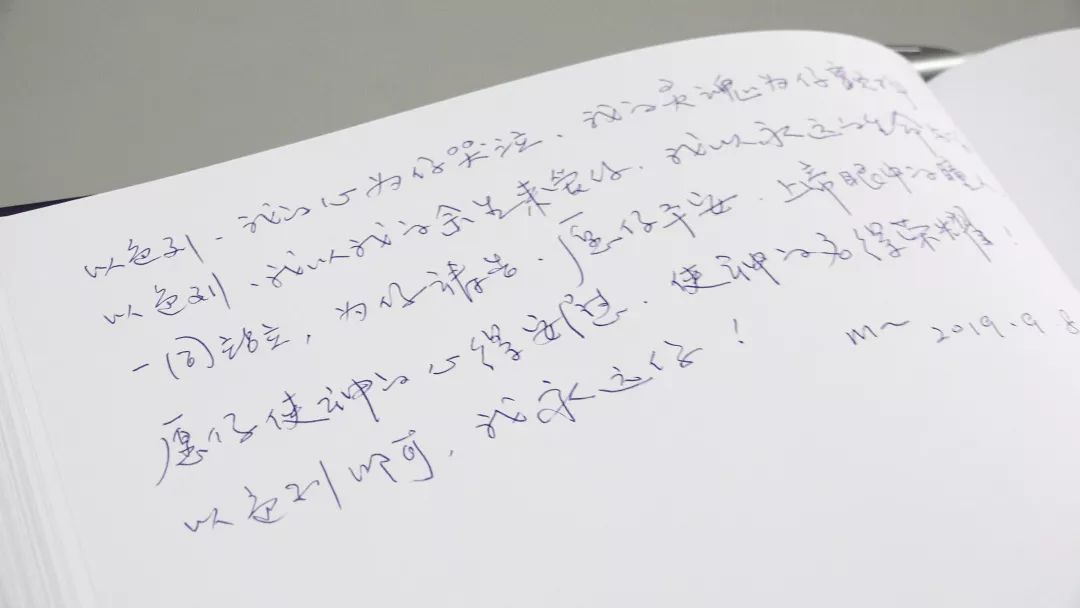 以色列、我的心为你哭泣、我的灵魂为你
以色列、我以我的余生来爱你、我以永远的生命
一同站立，为你祷告、愿你平安、上帝眼中的瞳人
愿你使神的心得安慰、使神的名得荣耀！
以色列，我永远 m~ 2019.9.8